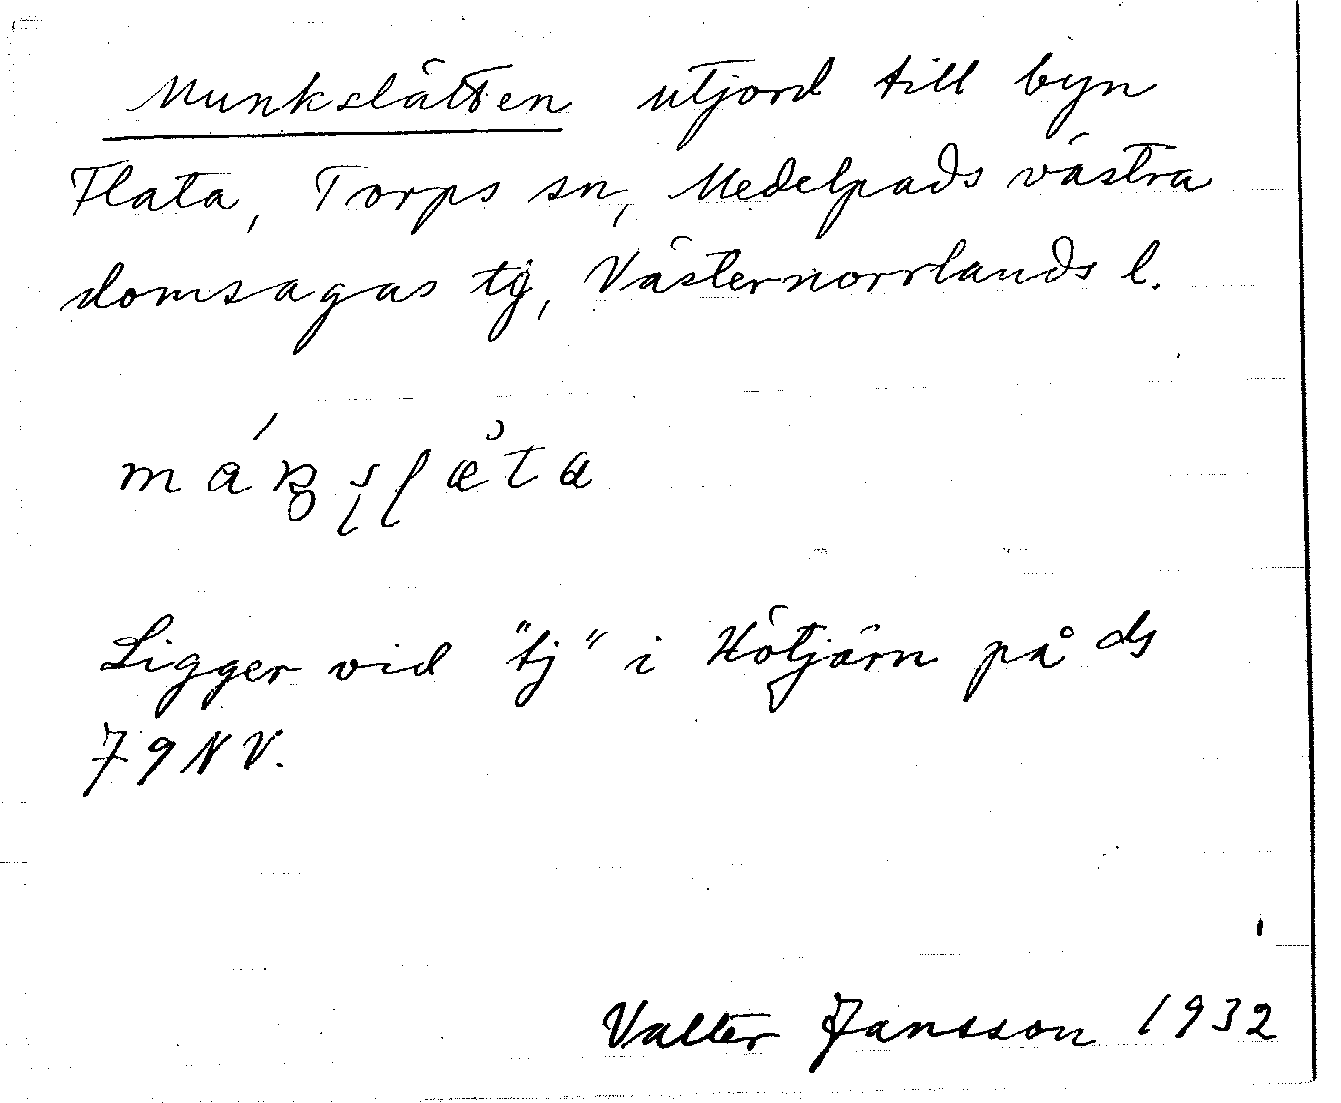 Munkslätten utjord till byn
Flata, Torps sn, Medelpads västra
domsagas tg, Västernorrlands l.
Ligger vid "tj" i Hötjärn på ds
79 NV.
Valter Jansson 1932